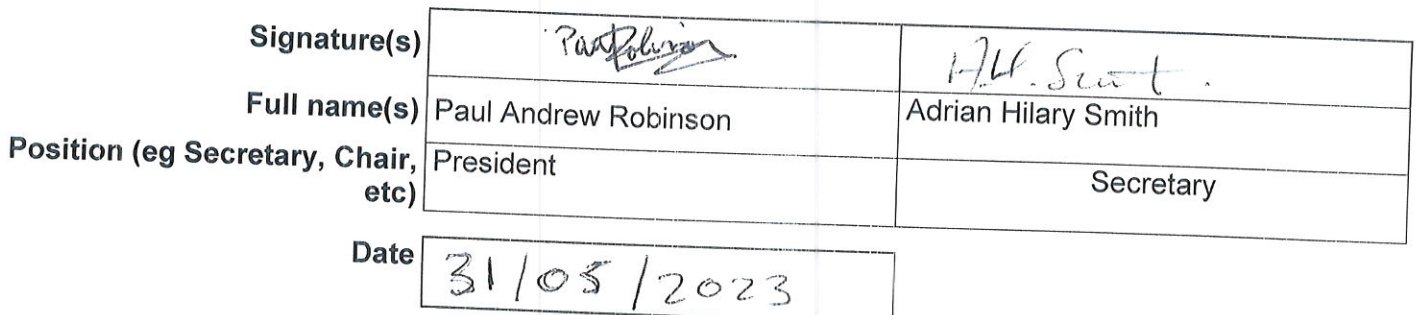 Signature(s) Paul Robinson A.H. Smith.
Full name(s) Paul Andrew Robinson Adrian Hilary Smith
Position (eg Secretary, Chair, President Secretary
etc)
Date 31/05/2023